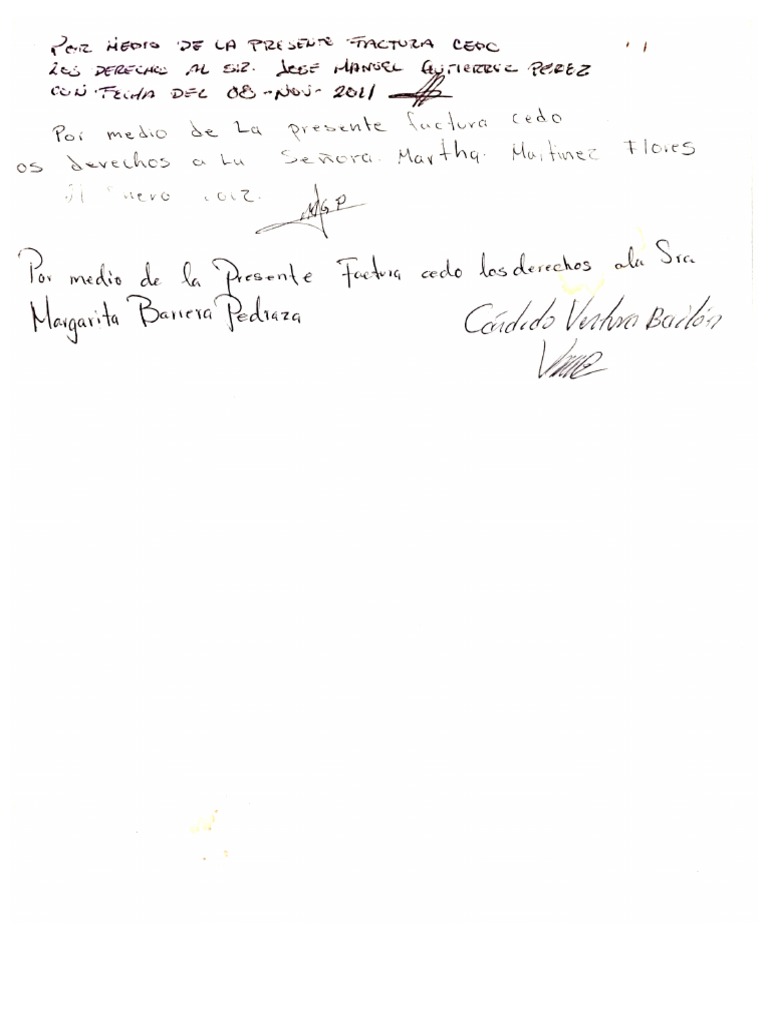 POR MEDIO DE LA PRESENTE FACTURA CEDO
LOS DERECHOS AL SR. JOSE MANUEL GUTIERREZ PEREZ
CON FECHA DEL 08-NOV-2011
Por medio de La presente factura cedo
os derechos a La Señora. Martha. Martinez Flores
Enero 2012.
MGP
Por medio de la Presente Factura cedo los derechos a la Sra
Margarita Barrera Pedraza
Cándido Ventura Bailón